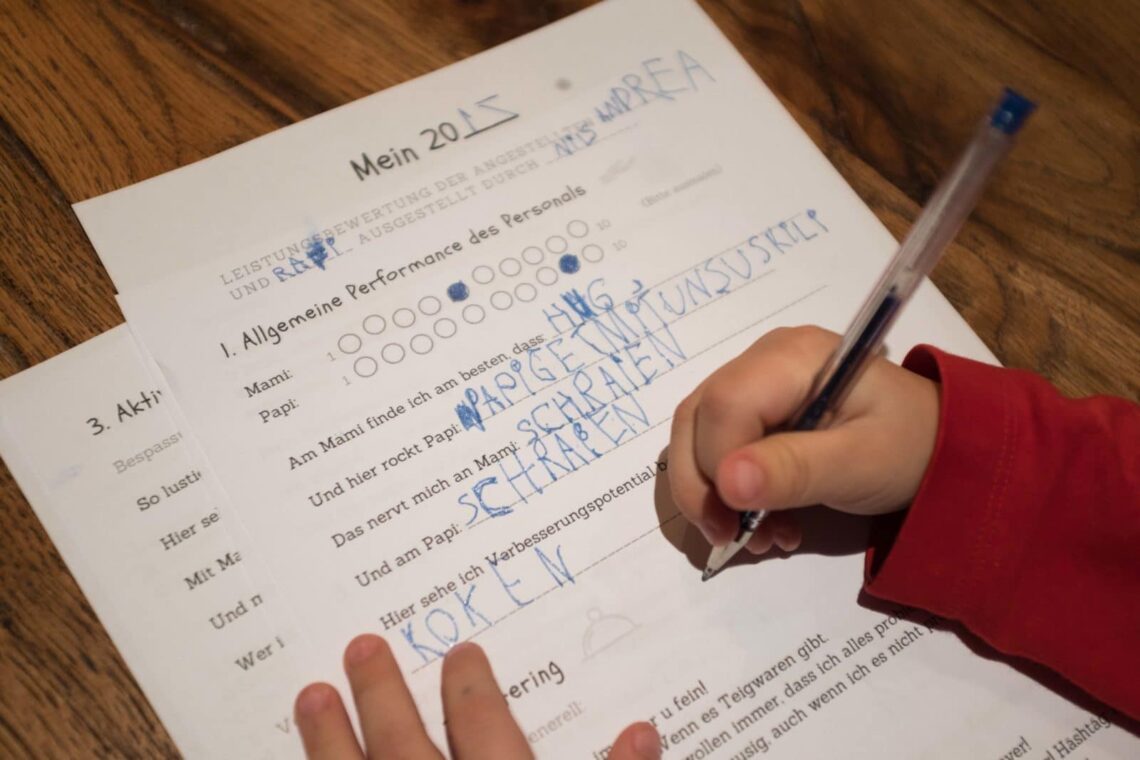 Mein 2017
LEISTUNGSBEWERTUNG DER ANGESTELLTEN
UND AUSGESTELLT DURCH
1. Allgemeine Performance des Personals
(Bitte ausmalen)
Mami: 1 10
Papi: 1 10
Am Mami finde ich am besten, dass:
Und hier rockt Papi: PAPI GET MIT UNS USKILI
Das nervt mich an Mami: SCHRAIEN
Und am Papi: SCHRAIEN
Hier sehe ich Verbesserungspotential b
KOKEN
ering
enerell:
u fein!
Wenn es Teigwaren gibt.
wollen immer, dass ich alles pro
usig, auch wenn ich es nicht
ver!
Hashtag
3. Akti
Bespass
So lusti
Hier se
Mit Ma
Und n
Wer i